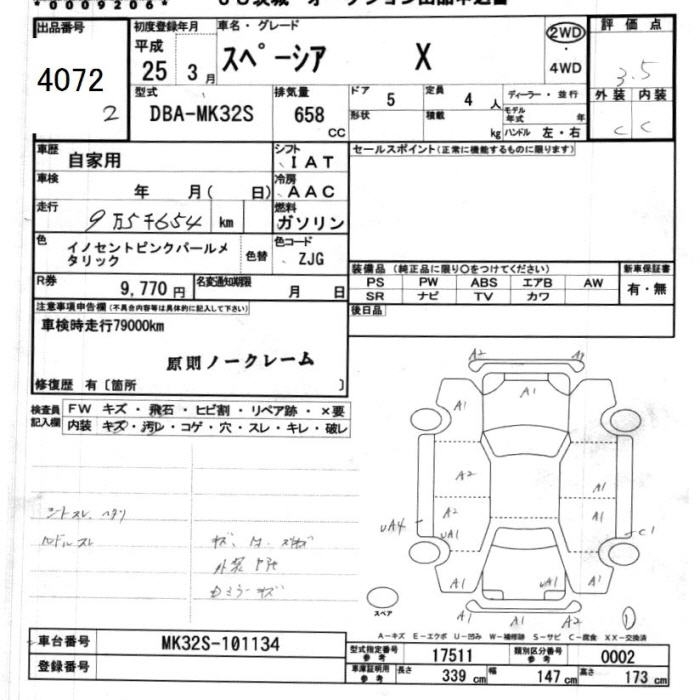 *0009206*
オークション出品申込書
出品番号
4072
2
初度登録年月
平成
25 3月
車名・グレード
スペーシア X
2WD
・
4WD
評価点
3.5
型式
DBA-MK32S
排気量
658 CC
ドア 5
定員 4 人
形状
積載 kg
ディーラー・並行
モデル年式 年
ハンドル 左・右
外装 内装
C C
車歴 自家用
シフト
IAT
セールスポイント(正常に機能するものに限ります)
車検 年 月( 日)
冷房
AAC
走行 9万5千654 km
燃料
ガソリン
色 イノセントピンクパールメタリック
色替
色コード
ZJG
装備品(純正品に限り○をつけてください)
PS PW ABS エアB AW
SR ナビ TV カワ
新車保証書
有・無
R券 9,770円
名変通知期限 月 日
後日品
注意事項申告欄(不具合内容等は具体的に記入して下さい)
車検時走行79000km
原則ノークレーム
修復歴 有〔箇所 〕
検査員記入欄
FW キズ・飛石・ヒビ割・リペア跡・×要
内装 キズ・汚レ・コゲ・穴・スレ・キレ・破レ
A2
A1
A1
A1
A2
A1
A2
A1
UA4
UA1
C1
A1
UA1
A1
A1
A1
A2
1
スペア
A-キズ E-エクボ U-凹み W-補修跡 S-サビ C-腐食 XX-交換済
車台番号 MK32S-101134
登録番号
型式指定番号 参考 17511
類別区分番号 参考 0002
車庫証明用 参考
長さ 339 cm
幅 147 cm
高さ 173 cm